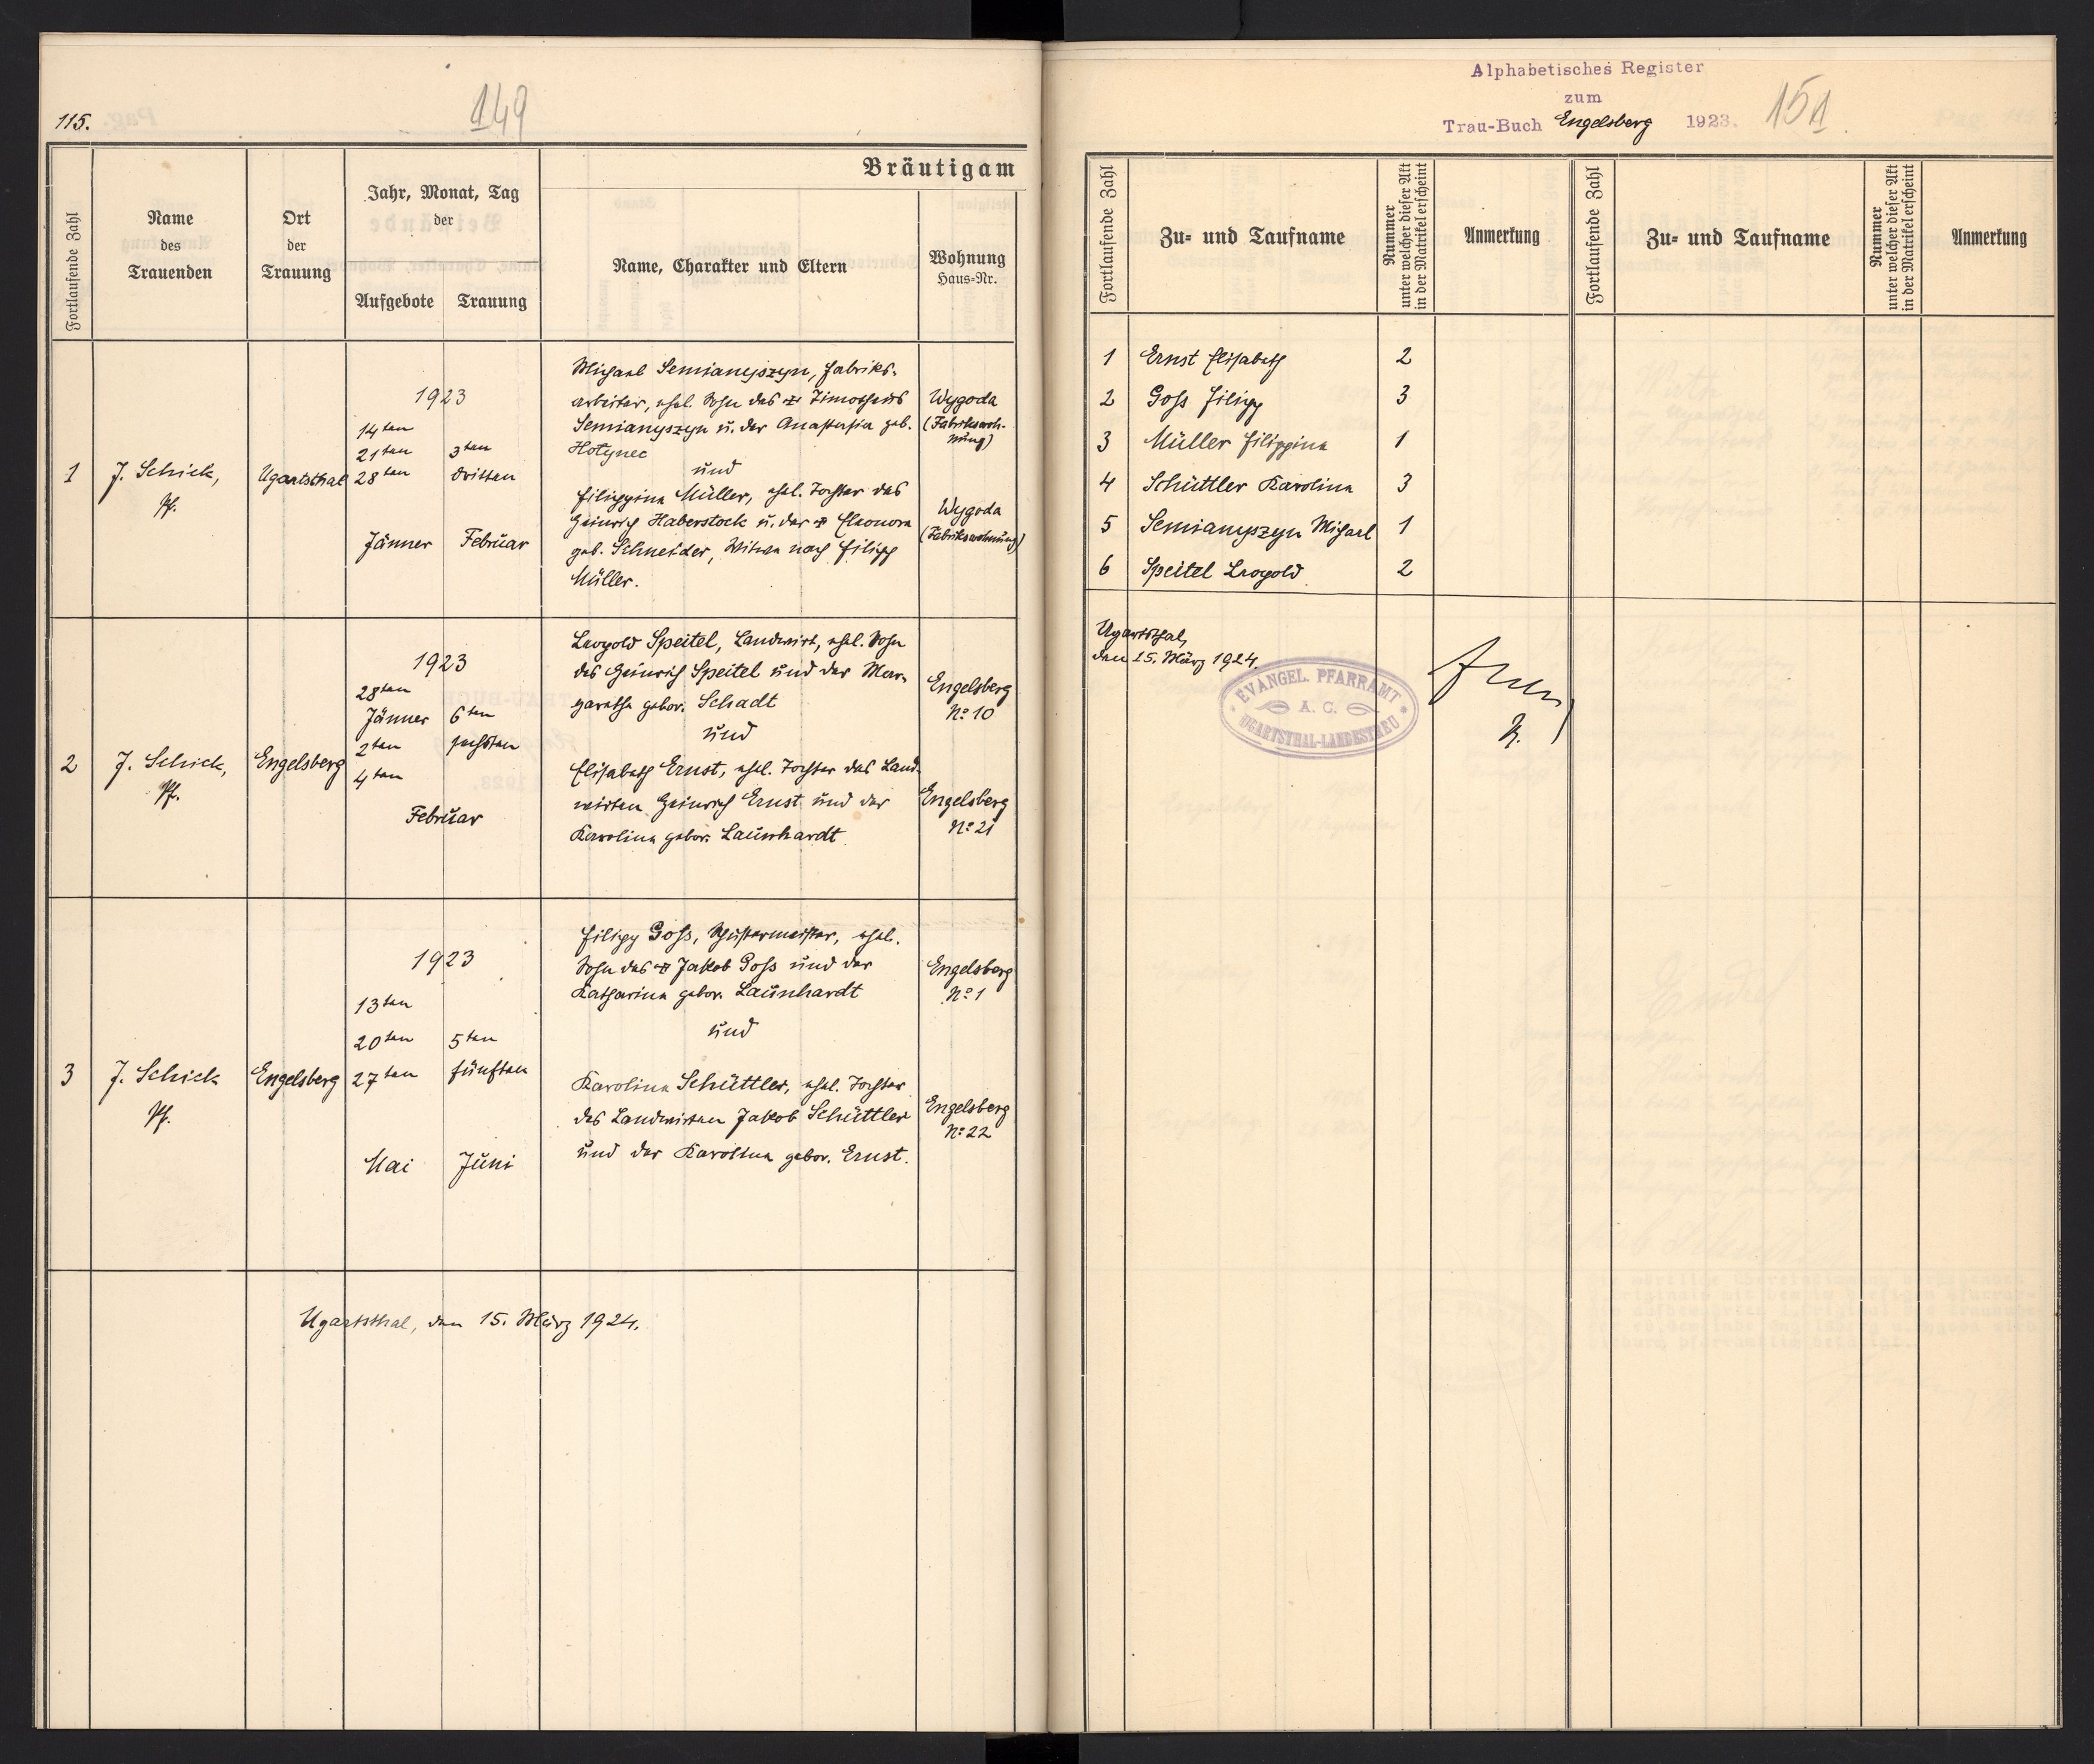 115.
149
Fortlaufende Zahl
Name
des
Trauenden
Ort
der
Trauung
Jahr, Monat, Tag
der
Aufgebote
Trauung
Bräutigam
Name, Charakter und Eltern
Wohnung
Haus-Nr.
1
J. Schick,
Pf.
Ugartsthal
1923
14ten
21ten
28ten
Jänner
3ten
dritten
Februar
Michael Semianyszyn, Fabriks-
arbeiter, ehel. Sohn des + Timotheus
Semianyszyn u. der Anastasia geb.
Hotynec
und
Filippina Müller, ehel. Tochter des
Heinrich Haberstock u. der + Eleonora
geb. Schneider, Witwe nach Filipp
Müller.
Wygoda
(Fabrikswoh-
nung)
Wygoda
(Fabrikswohnung)
2
J. Schick,
Pf.
Engelsberg
1923
28ten
Jänner
2ten
4ten
Februar
6ten
sechsten
Leopold Speitel, Landwirt, ehel. Sohn
des Heinrich Speitel und der Mar-
garetha gebor. Schadt
und
Elisabeth Ernst, ehel. Tochter des Land-
wirten Heinrich Ernst und der
Karolina gebor. Launhardt
Engelsberg
No 10
Engelsberg
No 21
3
J. Schick
Pf.
Engelsberg
1923
13ten
20ten
27ten
Mai
5ten
fünften
Juni
Filipp Goss, Schustermeister, ehel.
Sohn des + Jakob Goss und der
Katharina gebor. Launhardt
und
Karolina Schüttler, ehel. Tochter
des Landwirten Jakob Schüttler
und der Karolina gebor. Ernst.
Engelsberg
No 1
Engelsberg
No 22
Ugartsthal, den 15. März 1924.
Alphabetisches Register
zum
Trau-Buch Engelsberg 1923.
151
Fortlaufende Zahl
Zu- und Taufname
Nummer
unter welcher dieser Akt
in der Matrikel erscheint
Anmerkung
Fortlaufende Zahl
Zu- und Taufname
Nummer
unter welcher dieser Akt
in der Matrikel erscheint
Anmerkung
1 Ernst Elisabeth 2
2 Goss Filipp 3
3 Müller Filippina 1
4 Schüttler Karolina 3
5 Semianyszyn Michael 1
6 Speitel Leopold 2
Ugartsthal,
den 15. März 1924.
EVANGEL. PFARRAMT
A. C.
UGARTSTHAL-LANDESTREU